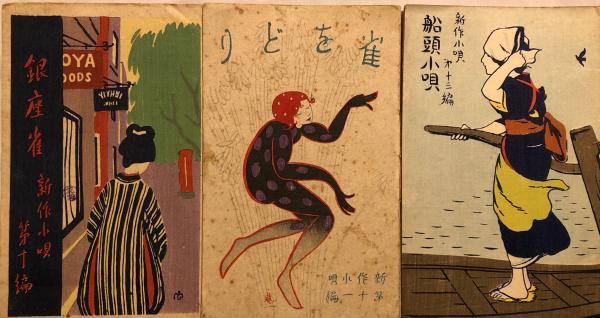 銀座雀
新作小唄
第十編
OYA
OODS
雀をどり
新作小唄
第十一編
新作小唄 第十三編
船頭小唄